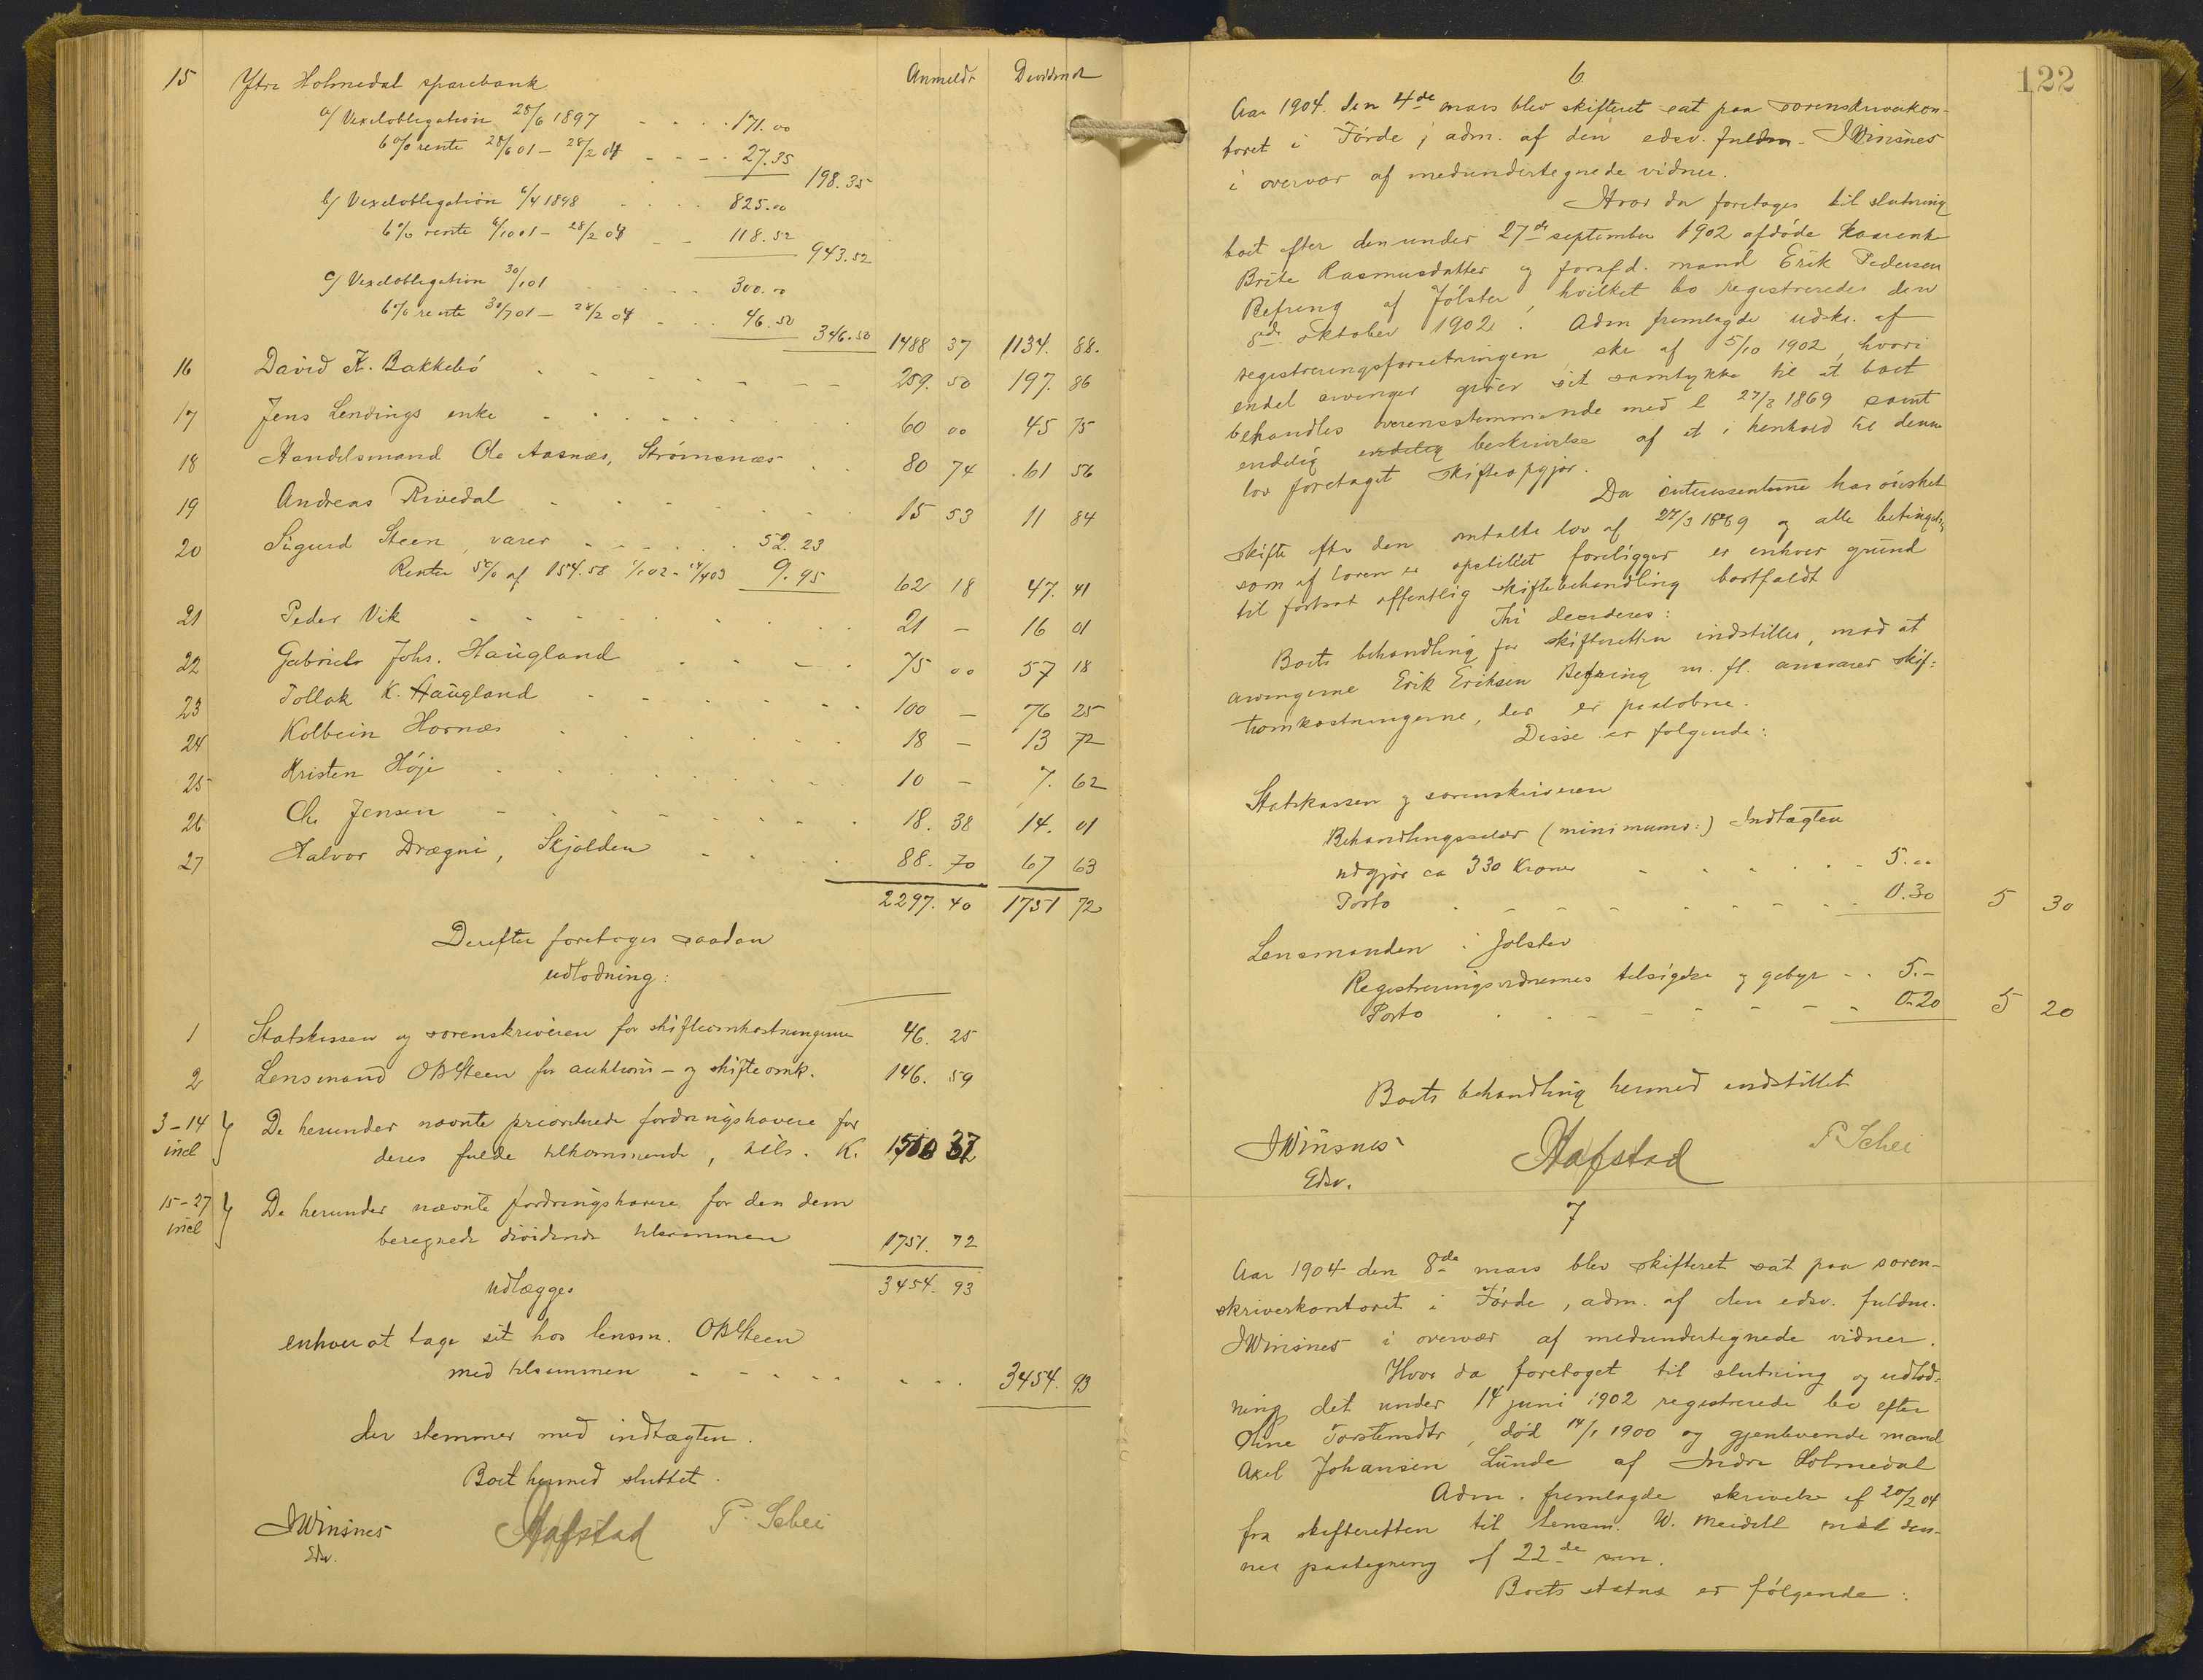 Anmeldt Dividende
15 Ytre Holmedal sparebank
a/ Vexelobligation 28/6 1897 171.00
6% rente 28/6 01 - 28/2 04 27.35
198.35
b/ Vexelobligation 6/4 1898 825.00
6% rente 6/10 01 - 28/2 04 118.52
943.52
c/ Vexelobligation 30/1 01 300.00
6% rente 30/7 01 - 28/2 04 46.50
346.50 1488 37 1134. 88.
16 David K. Bakkebö 259. 50 197. 86
17 Jens Lendings enke 60 00 45 75
18 Handelsmand Ole Aasnæs, Strömsnæs 80 74 61 56
19 Andreas Rivedal 15 53 11 84
20 Sigurd Steen, varer 52. 23
Renter 5% af 154.58 1/1 02 - 14/4 03 9.95 62 18 47. 41
21 Peder Vik 21 — 16 01
22 Gabriel Johs. Haugland 75 00 57 18
23 Tollak K. Haugland 100 — 76 25
24 Kolbein Hornæs 18 — 13 72
25 Kristen Höje 10 — 7. 62
26 Chr Jensen 18. 38 14. 01
27 Halvor Drægni, Skjolden 88. 70 67 63
2297. 40 1751 72
Derefter foretoges saadan
udlodning:
1 Statskassen og sorenskriveren for skifteomkostningerne 46. 25
2 Lensmand OBSteen for auktions- og skifteomk. 146. 59
3-14 incl } De herunder nævnte prioriterede fordringshavere for
deres fulde tilkommende, tils. K. 1510 37
15-27 incl } De herunder nævnte fordringshavere for den dem
beregnede dividende tilsammen 1751. 72
udlægges 3454. 93
enhver at tage sit hos lensm. OBSteen
med tilsammen 3454. 93
der stemmer med indtægten.
Boet hermed sluttet.
JWinsnes Aafstad P. Schei
Edsv.
122
6
Aar 1904. den 4de mars blev skifteret sat paa sorenskriverkon-
toret i Förde, adm. af den edsv. fuldm. JWinsnes
i overvær af medundertegnede vidner.
Hvor da foretoges til slutning
boet efter den under 27de september 1902 afdöde Kaarenke
Brite Rasmusdatter og forafd. mand Erik Pedersen
Befring af Jölster, hvilket bo registreredes den
5te oktober 1902. Adm fremlagde udskr. af
registreringsforretningen, skr af 5/10 1902, hvori
endel arvinger giver sit samtykke til at boet
behandles overensstemmende med l 27/3 1869 samt
endelig endelig beskrivelse af et i henhold til denne
lov foretaget skifteopgjør.
Da interessenterne har önsket
skifte efter den omtalte lov af 27/3 1869 og alle betingelser
som af loven er opstillet foreligger er enhver grund
til fortsat offentlig skiftebehandling bortfaldt
Thi decideres:
Boets behandling for skifteretten indstilles, mod at
arvingerne Erik Eriksen Befring m. fl. ansvarer skif-
teomkostningerne, der er paalöbne.
Disse er følgende:
Statskassen og sorenskriveren
Behandlingssalær (minimums:) Indtægten
udgjør ca 330 Kroner 5.00
Porto 0.30 5 30
Lensmanden i Jølster
Registreringsvidnernes tilsigelse og gebyr 5.-
Porto 0.20 5 20
Boets behandling hermed indstillet
JWinsnes Aafstad P. Schei
Edsv.
7
Aar 1904 den 8de mars blev skifteret sat paa soren-
skriverkontoret i Förde, adm. af den edsv. fuldm.
JWinsnes i overvær af medundertegnede vidner.
Hvor da foretoget til slutning og udlod-
ning det under 14 juni 1902 registrerede bo efter
Oline Torstensdtr, död 14/1 1900 og gjenlevende mand
Axel Johansen Lunde af Indre Holmedal
Adm. fremlagde skrivelse af 20/2 04
fra skifteretten til lensm. W. Meidell med den-
nes paategning af 22de sm.
Boets status er fölgende: